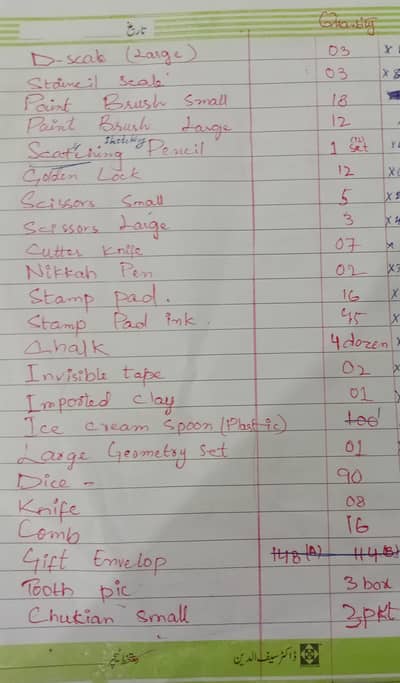 تاریخ
Quantity
D-scab (Large) 03 x
Staincil scab 03 x 8
Paint Brush small 18
Paint Brush Large 12
Scatching sketching Pencil 1 set (12) x
Golden Lock 12 x
Scissors Small 5 x
Scissors Large 3 x
Cutter Knife 07 x
Nikkah Pen 02 x
Stamp pad. 16 x
Stamp Pad ink. 45 x
Chalk 4 dozen x
Invisible tape 02 x
Imported clay 01
Ice cream spoon (Plastic) 100
Large Geometry Set 01
Dice - 90
Knife 08
Comb 16
Gift Envelop 148 (A) 114 (B)
Tooth pic 3 box
Chukian small 3 pkt
ڈاکٹر سیف الدین